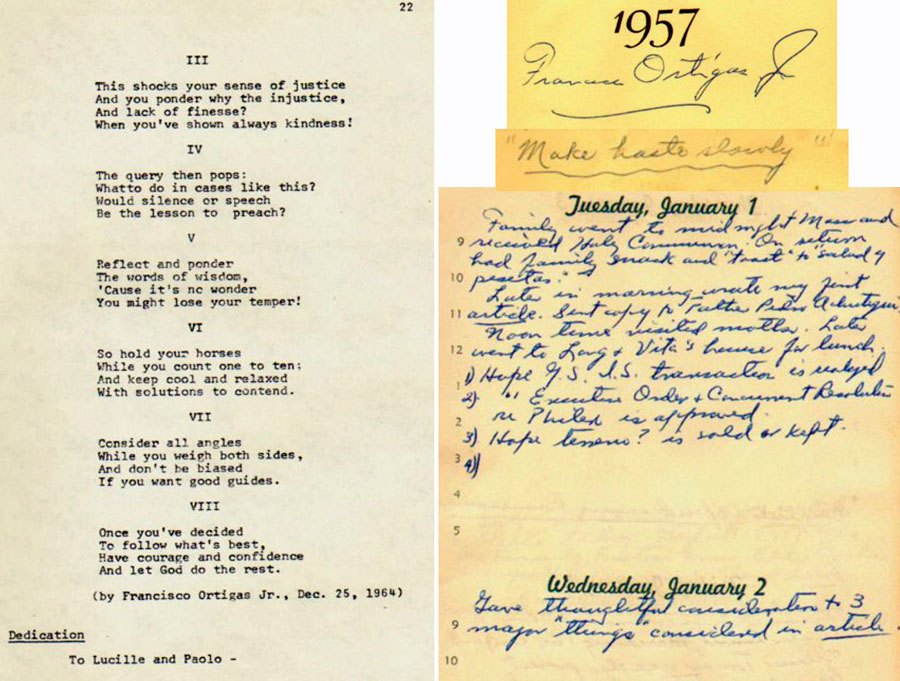 22
III
This shocks your sense of justice
And you ponder why the injustice,
And lack of finesse?
When you've shown always kindness!
IV
The query then pops:
Whatto do in cases like this?
Would silence or speech
Be the lesson to preach?
V
Reflect and ponder
The words of wisdom,
'Cause it's nc wonder
You might lose your temper!
VI
So hold your horses
While you count one to ten;
And keep cool and relaxed
With solutions to contend.
VII
Consider all angles
While you weigh both sides,
And don't be biased
If you want good guides.
VIII
Once you've decided
To follow what's best,
Have courage and confidence
And let God do the rest.
(by Francisco Ortigas Jr., Dec. 25, 1964)
Dedication
To Lucille and Paolo -
1957
Francisco Ortigas Jr
"Make haste slowly"
Tuesday, January 1
Family went to midnight Mass and
9 received Holy Communion. On return
had family snack and "toast" to "salud y
10 pesetas."
Later in morning wrote my joint
11 article. Sent copy to Father Pedro
Noon time visited mother. Later
12 went to & Vita's house for lunch.
1) Hope transaction is realized
1
2) " Executive Order & Concurrent Resolution
2 re is approved.
3) Hope terreno? is sold or kept.
3
4)
4
5
Wednesday, January 2
Gave thoughtful consideration to 3
9 major "things" considered in article.
10